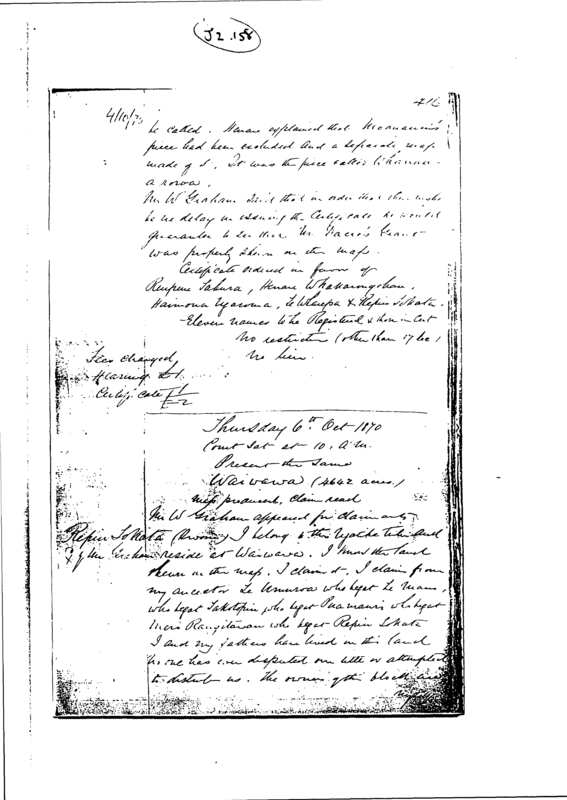 J2.158
416
4/10/70
be called. Henare explained that
piece had been excluded and a separate map
made of it. It was the piece called
a roroa.
Mr W Graham said that in order that there might
be no delay in issuing the Certificate he would
guarantee to see that Mr Grant
was properly shown on the map.
Certificate ordered in favor of
Reupene Tahura, Henare Whakarongohau,
Haimona Ngaroma, Te Wharepa & Repin Te Kata.
Eleven names to be Registered & shown in Cert
No restriction (other than 17 Sec)
No lien
Fees charged
Hearing £1
Certificate £1
£2
Thursday 6th Oct 1870
Court sat at 10. A.M.
Present the same
Waiwawa (4642 acres)
Map produced, claim read
Mr W Graham appeared for claimants
Repin Te Kata (Sworn) I belong to the and
X by Mr Graham reside at Waiwawa. I know the land
shewn on the map. I claim it. I claim from
my ancestor Te Umuroa who begat Te Mana,
who begat who begat who begat
Rangitawau who begat Repin Te Kata
I and my fathers have lived on this land
No one has ever disputed our title or attempted
to disturb us. The owners of the block are